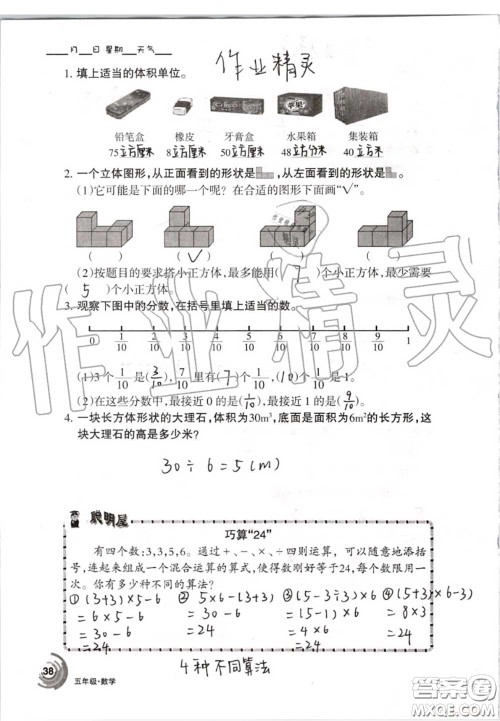 ____月____日 星期____天气____
作业精灵
1. 填上适当的体积单位。
铅笔盒 橡皮 牙膏盒 水果箱 集装箱
75立方厘米 8立方厘米 50立方厘米 48立方分米 40立方米
2. 一个立体图形,从正面看到的形状是 ,从左面看到的形状是 。
(1)它可能是下面的哪一个呢? 在合适的图形下面画“√”。
( ) ( √ ) ( ) ( )
(2)按题目的要求搭小正方体,最多能用( 7 )个小正方体,最少需要
( 5 )个小正方体。
3. 观察下图中的分数,在括号里填上适当的数。
0 1/10 1/10 1/10 1/10 1/10 1/10 1/10 1/10 1/10 1
(1)3个1/10是(3/10),7/10里有(7)个1/10,(10)个1/10是1。
(2)在这些分数中,最接近0的是(1/10),最接近1的是(9/10)。
4. 一块长方体形状的大理石,体积为30m³,底面是面积为6m²的长方形,这
块大理石的高是多少米?
30÷6=5(m)
聪明屋
巧算“24”
有四个数:3,3,5,6。通过+、-、×、÷四则运算,可以随意地添括
号,连起来组成一个混合运算的算式,使得数刚好等于24,每个数限用一
次。你有多少种不同的算法?
① (3+3)×5-6 ② 5×6-(3+3) ③ (5-3÷3)×6 ④ (5+3)×(6-3)
=6×5-6 =30-6 =(5-1)×6 =8×3
=30-6 =24 =24 =24
=24
4种不同算法
38
五年级·数学
作业精灵
答案圈
MXQE.COM